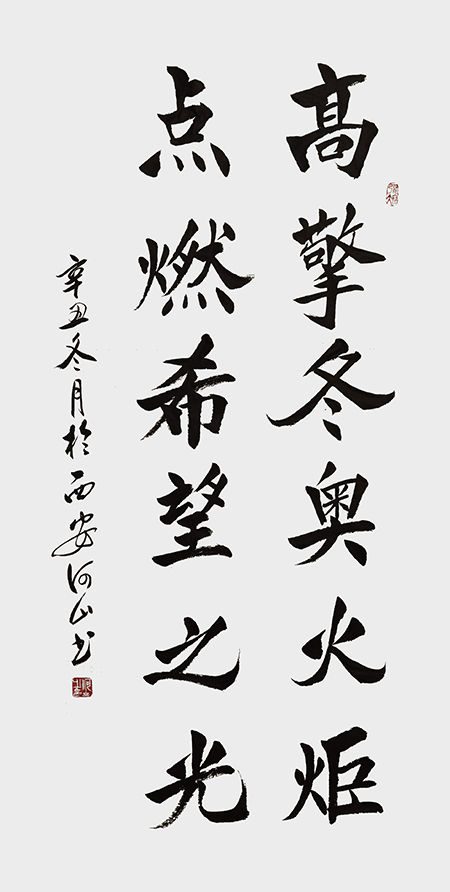 髙擎冬奥火炬
点燃希望之光
辛丑冬月於西安河山书